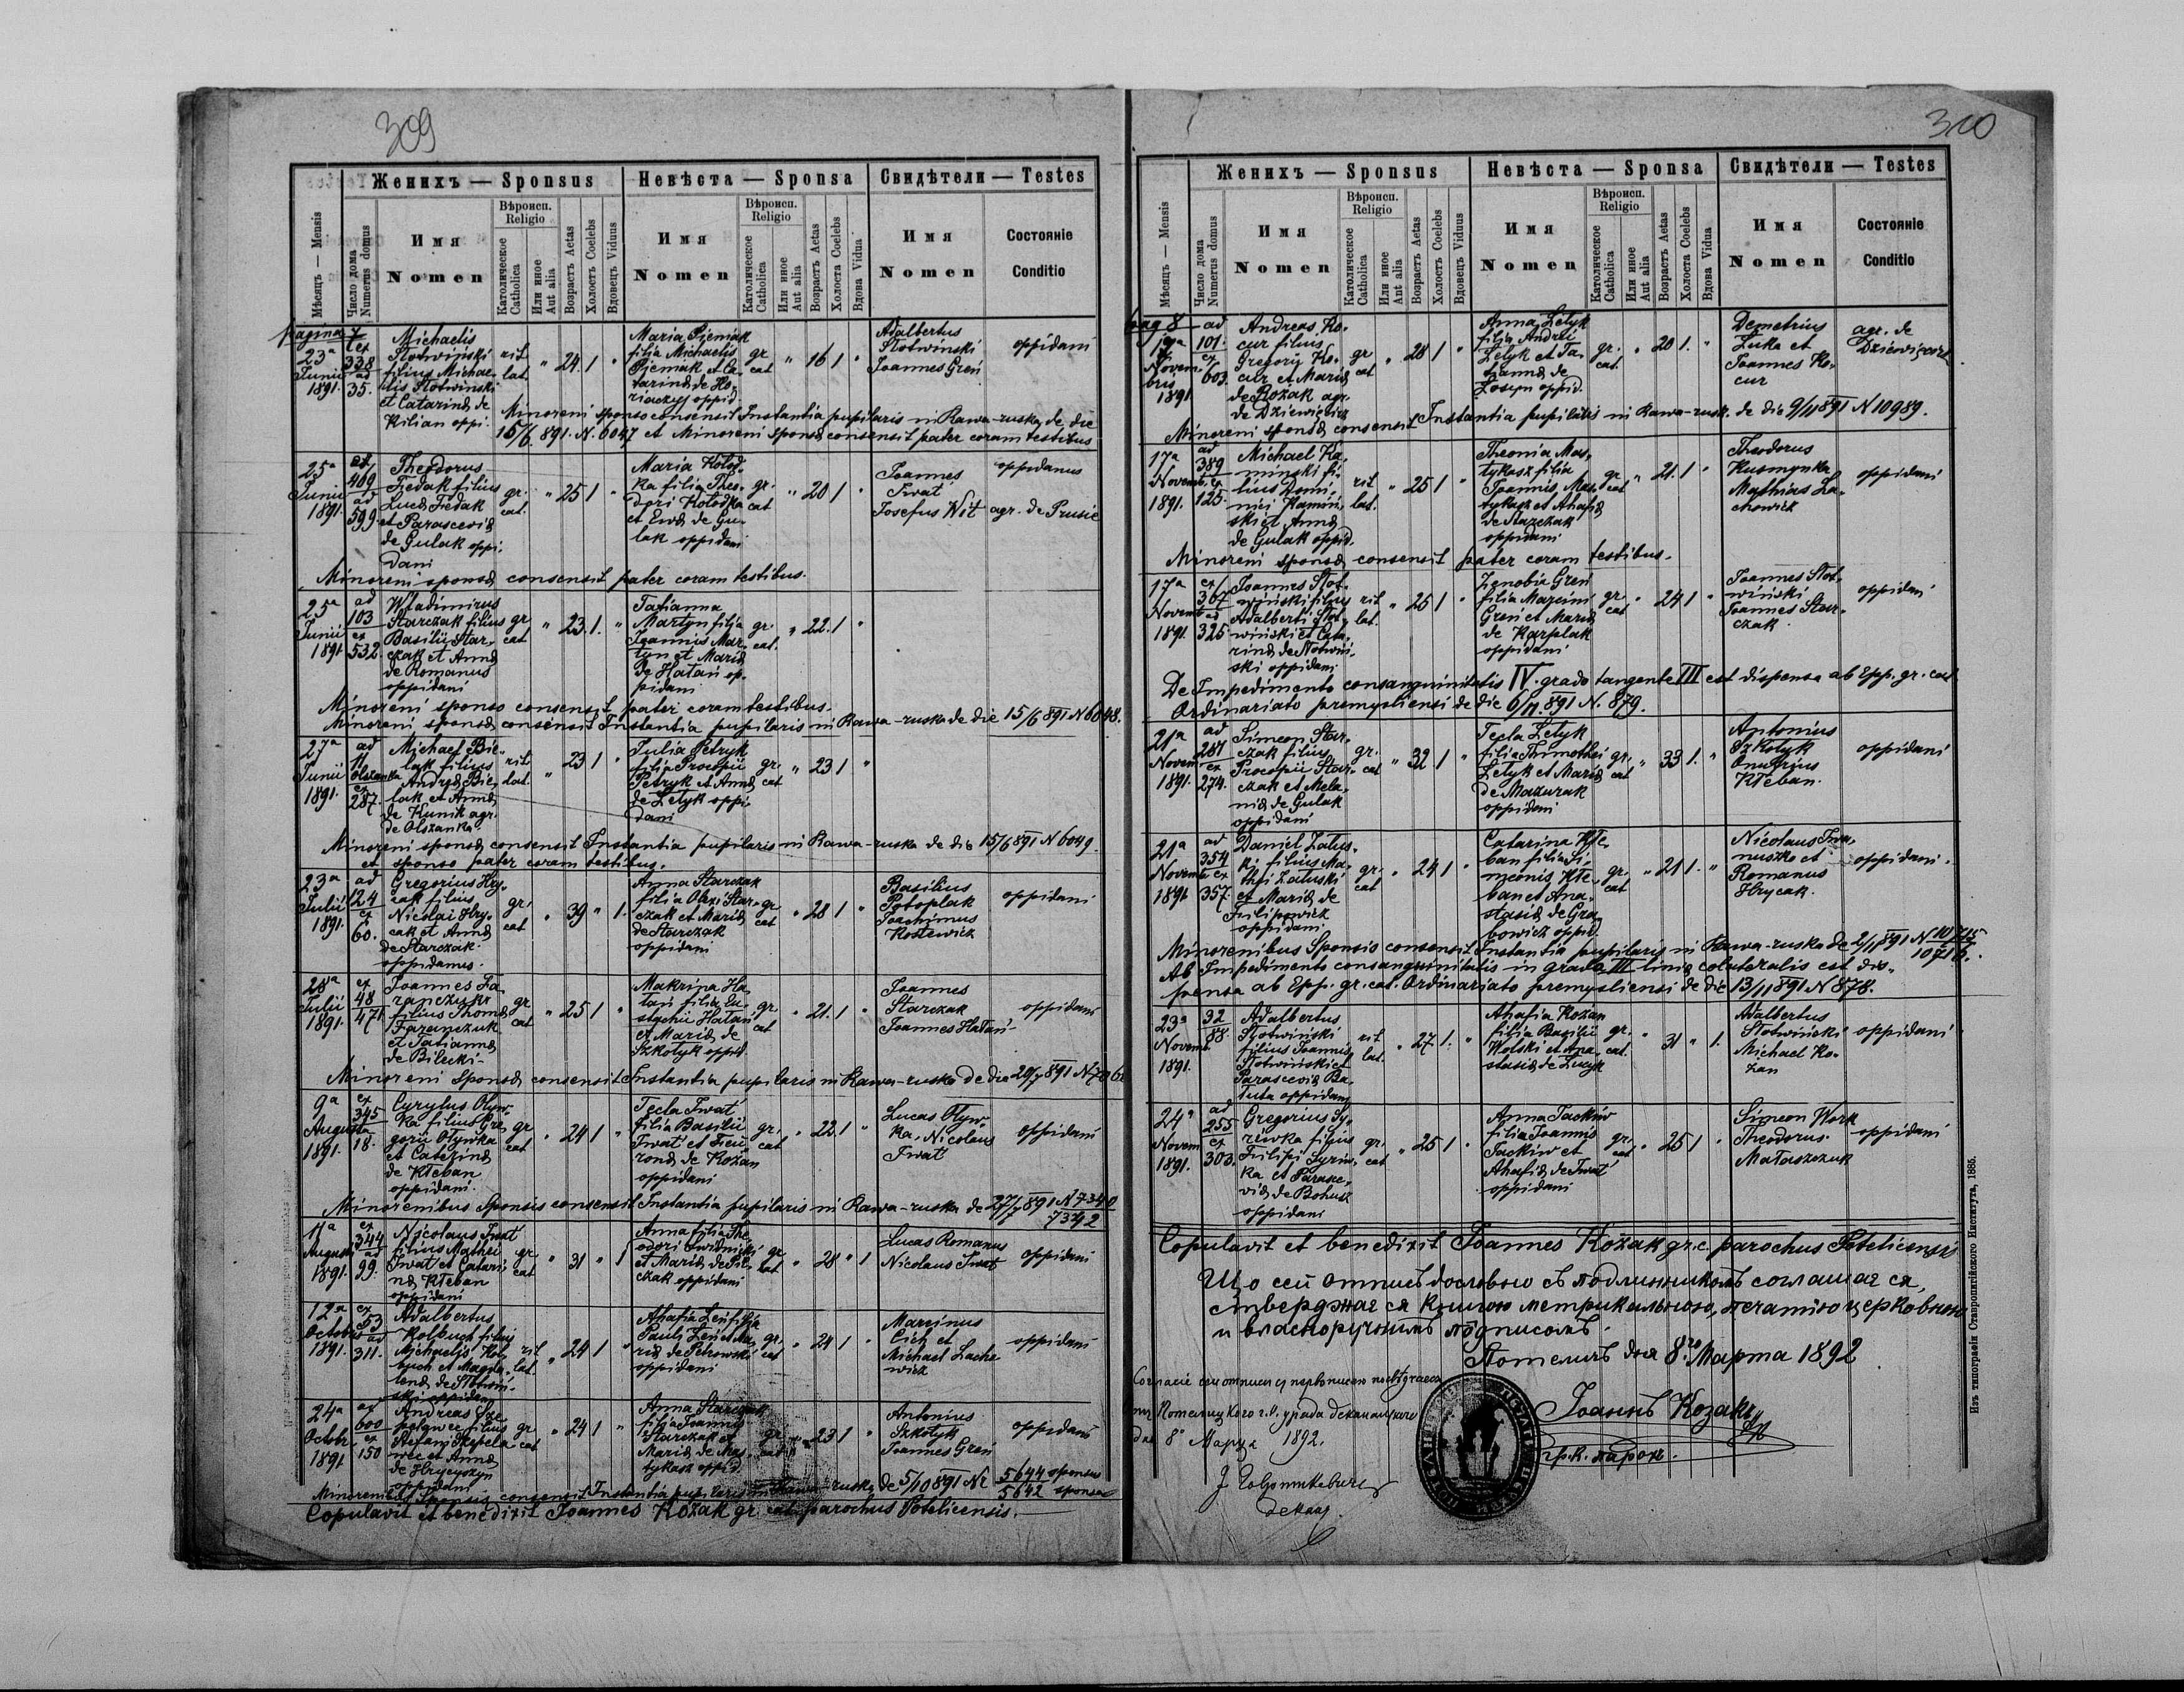 309
Женихъ — Sponsus
Невѣста — Sponsa
Свидѣтели — Testes
Мѣсяцъ — Mensis
Число дома
Numerus domus
Имя
Nomen
Вѣроисп.
Religio
Католическое
Catholica
Или иное
Aut alia
Возрастъ Aetas
Холостъ Coelebs
Вдовецъ Viduus
Имя
Nomen
Вѣроисп.
Religio
Католическое
Catholica
Или иное
Aut alia
Возрастъ Aetas
Холоста Coelebs
Вдова Vidua
Имя
Nomen
Состояніе
Conditio
pagina 7
23a
Junii
1891.
ex
338
ad
35.
Michaelis
Słotwiński
filius Michae-
lis Słotwinski
et Catarinæ de
Kilian oppi.
rit
lat.
" 24. 1 "
Maria Pjeniak
filia Michaelis
Pjeniak et Ca-
tarinæ de Ho-
riaczyj oppid.
gr
cat
" 16 1 "
Adalbertus
Słotwinski
Joannes Greń
oppidani
Minoreni sponso consensit Instantia pupilaris in Rawa-ruska de die
15/6 891. N. 6047 et Minoreni sponsæ consensit pater coram testibus
25a
Junii
1891.
409
ad
599.
Theodorus
Fedak filius
Lucæ Fedak
et Parascevia
de Gulak oppi-
dani
gr.
cat.
" 25 1 "
Maria Kolod-
ka filia Theo-
dori Kolodka
et Evæ de Gu-
lak oppidani
gr.
cat
" 20 1 "
Joannes
Iwat
Josefus Wit
oppidanus
agr. de Prusie
Minoreni sponsæ consensit pater coram testibus.
25a
Junii
1891
ad
103
ex
532.
Wladimirus
Starczak filius
Basilii Star-
czak et Annæ
de Romanus
oppidani
gr
cat
" 23. 1. "
Tatianna
Martyn filia
Joannis Mar-
tyn et Mariæ
de Hatań op-
pidani
gr.
cat.
" 22. 1 "
Minoreni sponso consensit pater coram testibus.
Minoreni sponsæ consensit Instantia pupilaris in Rawa-ruska de die 15/6 891 N 6048.
27a
Junii
1891.
ad
11
Olszanka
ex
287.
Michael Bie-
lak filius
Andreæ Bie-
lak et Annæ
de Kunik agr.
de Olszanka.
rit
lat.
" 23 1 "
Julia Petryk
filia Procopii
Petryk et Annæ
de Letyk oppi-
dani
gr.
cat
" 23 1 "
Minoreni sponsæ consensit Instantia pupilaris in Rawa-ruska de die 15/6 891 N 6049.
et sponso pater coram testibus.
23a
Julii
1891.
ad
124
ex
60.
Gregorius Hry-
cak filius
Nicolai Hry-
cak et Annæ
de Starczak.
oppidanus.
gr.
cat
" 39 " 1.
Anna Starczak
filia Olexi Star-
czak et Mariæ
de Starczak
oppidani
gr
cat
" 28 1 "
Basilius
Potoplak
Joachimus
Kostewicz
oppidani
28a
Julii
1891.
ex
48
471
Joannes Fa-
ranczuk
filius Thomæ
Faranczuk
et Tatiannæ
de Bilecki-
gr
cat
" 25 1 "
Makrina Ha-
tań filia Eu-
stachii Hatań
et Mariæ de
Szkotyk oppid.
gr.
cat
" 21. 1 "
Joannes
Starczak
Joannes Hatań
oppidani
Minoreni Sponsæ consensit Instantia pupilaris in Rawa-ruska de die
9a
Augusta
1891.
ex
345
18.
Cyrylus Olyw-
ka filius Gre-
gorii Olywka
et Catarinæ
de Kteban
oppidani.
gr
cat
" 24 1 "
Tecla Iwat
filia Basilii
gr.
cat
" 22. 1 "
Lucas Olyw-
ka, Nicolaus
Iwat
oppidani
Minorenibus Sponsis consensit Instantia pupilaris in Rawa-ruska de 27/7 891 N 7340
7342
11a
Augusti
1891.
ex
344
ad
99.
Nicolaus Iwat
filius Mathei
Iwat et Catari-
næ Kteban
oppidani
gr
cat
" 31 " 1
Anna filia The-
odori
oppidani
" 28 " 1
Lucas Romanus
Nicolaus Iwat
oppidani
12a
Octobr
1891.
ex
53
ad
311.
Adalbertus
Kolbuch filius
Michaelis Kol-
buch et Magda-
lenæ de Słotwin-
ski oppidani
rit
lat.
" 24 1 "
Ahafia Leń filia
Pauli Leń et Ma-
riæ de Petrowski
oppidani
gr.
cat
" 24 1 "
Marcinus
Cich et
Michael Lacho
wicz
oppidani
24a
Octobr
1891
ad
600
ex
150
Andreas
filius
Stefani
et Annæ
de Hrycyszyn
oppidani
gr
cat
" 24 1 "
Anna Starczak
filia Joannis
Starczak et
Mariæ de Mas-
tykasz oppid.
gr
cat
" 23 1 "
Antonius
Szkotyk
Joannes Greń
oppidani
Minorenibus Sponsis consensit Instantia pupilaris in Rawa-ruska de 5/10 891 Nr 5644 sponsus
5642 sponsa
Copulavit et benedixit Joannes Kozak gr. cat. parochus Potelicensis.
310
Женихъ — Sponsus
Невѣста — Sponsa
Свидѣтели — Testes
Мѣсяцъ — Mensis
Число дома
Numerus domus
Имя
Nomen
Вѣроисп.
Religio
Католическое
Catholica
Или иное
Aut alia
Возрастъ Aetas
Холостъ Coelebs
Вдовецъ Viduus
Имя
Nomen
Вѣроисп.
Religio
Католическое
Catholica
Или иное
Aut alia
Возрастъ Aetas
Холоста Coelebs
Вдова Vidua
Имя
Nomen
Состояніе
Conditio
pag 8
17a
Novem-
bris
1891
ad
101.
ex
603.
Andreas Ko-
cur filius
Gregorij Ko-
cur et Mariæ
de Rożak agr.
de Dziewięcierz
gr
cat
" 28 1 "
Anna Letyk
filia Andrei
Letyk et Ta-
tiannæ de
oppid.
gr.
cat.
" 20 1. "
Demetrius
Luka et
Joannes Ko-
cur
agr. de
Dziewięcierz
Minoreni sponsæ consensit Instantia pupilaris in Rawa-rusk. de die 9/11 891 N 10989.
17a
Novemb.
1891.
ad
389
ex
125.
Michael Ka-
minski fi-
lius Domi-
nici Kamin-
ski et Annæ
de Gulak oppid.
rit
lat.
" 25 1 "
Theonia Mas-
tykasz filia
Joannis Mas-
tykasz et Ahafiæ
de Starczak
oppidani
gr
cat
" 21. 1 "
Theodorus
Kusmynka
Mathias La-
chowicz
oppidani
Minoreni sponsæ consensit pater coram testibus.
17a
Novemb
1891.
ex
367
ad
325
Joannes Słot-
wiński filius
Adalberti Słot-
wiński et Cata-
rinæ de Słotwin-
ski oppidani
rit
lat.
" 25 1 "
Zenobia Greń
filia Marcini
Greń et Mariæ
de Karplak
oppidani
gr
cat
" 24 1 "
Joannes Słot-
wiński
Joannes Star-
czak
oppidani
De Impedimento consanguinitatis IV. grado tangente III est dispensa ab Epp. gr. cat
Ordinariato premysliensi de die 6/11. 891 N. 879.
21a
Novem
1891.
ad
287
ex
274.
Simeon Star-
czak filius
Procopii Star-
czak et Mela-
niæ de Gulak
oppidani
gr.
cat
" 32 1 "
Tecla Letyk
filia Timothei
Letyk et Mariæ
de Mazurak
oppidani
gr.
cat
" 33 1. "
Antonius
Szkotyk
Onufrius
Kteban.
oppidani
21a
Novemb
1891
ad
354
ex
357.
Daniel Załus-
ki filius Ma-
thei Załuski
et Mariæ de
Filipowicz
oppidani
gr.
cat
" 24 1 "
Catarina Kte-
ban filia Si-
meonis Kte-
ban et Ana-
stasiæ de Gra-
bowicz oppid.
gr.
cat
" 21 1. "
Nicolaus Iwa-
nuszko et
Romanus
Hrycak.
oppidani.
Minorenibus Sponsis consensit Instantia pupilaris in Rawa-ruska de 2/11 891 N 10715
Ab Impedimento consanguinitatis in grado III liniæ colateralis est dis-
pensa ab Epp. gr. cat. Ordinariato premysliensi de die 13/11 891 N 878.
23a
Novemb.
1891.
32
88.
Adalbertus
Słotwiński
filius Joannis
Słotwiński et
Paraseviæ Ba-
tuta oppidani
rit
lat.
" 27 1. "
Ahafia Kożan
filia Basilii
Wolski et Ana-
stasiæ de Lucyk
gr.
cat.
" 31 " 1.
Adalbertus
Słotwiński
Michael Ko-
żan
oppidani
24a
Novem
1891.
ad
255
ex
303.
Gregorius Sy-
riwka filius
Filipi Syriw-
ka et Paraxe-
viæ de Bohusz
oppidani
gr.
cat
" 25 1 "
Anna Jackiw
filia Joannis
Jackiw et
Ahafiæ de Iwat
oppidani
gr.
cat
" 25 1 "
Simeon Work
Theodorus
Małaszczuk
oppidani
Copulavit et benedixit Joannes Kozak gr. c. parochus Potelicensis
Що сей отписъ дословно съ подлинникомъ соглашае ся,
стверджае ся книгою метрикальною, печатію церковною
и власноручнымъ подписомъ.
Потеличъ дня 8го Марта 1892
дня 8 Марта 1892.
Іоаннъ Козакъ
гр. к. парох.
декан.
Изъ типографіи Ставропигійского Института, 1885.